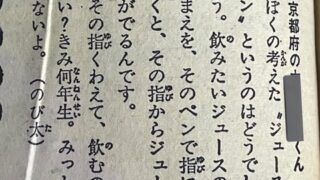 京都府の
くん
ぼくの考えた〝ジュース
ン〟というのはどうでし
う。飲みたいジュースの
まえを、そのペンで指に
くと、その指からジュー
がでるんです。
その指くわえて、飲むの
い？きみ何年生。みっと
ないよ。（のび太）